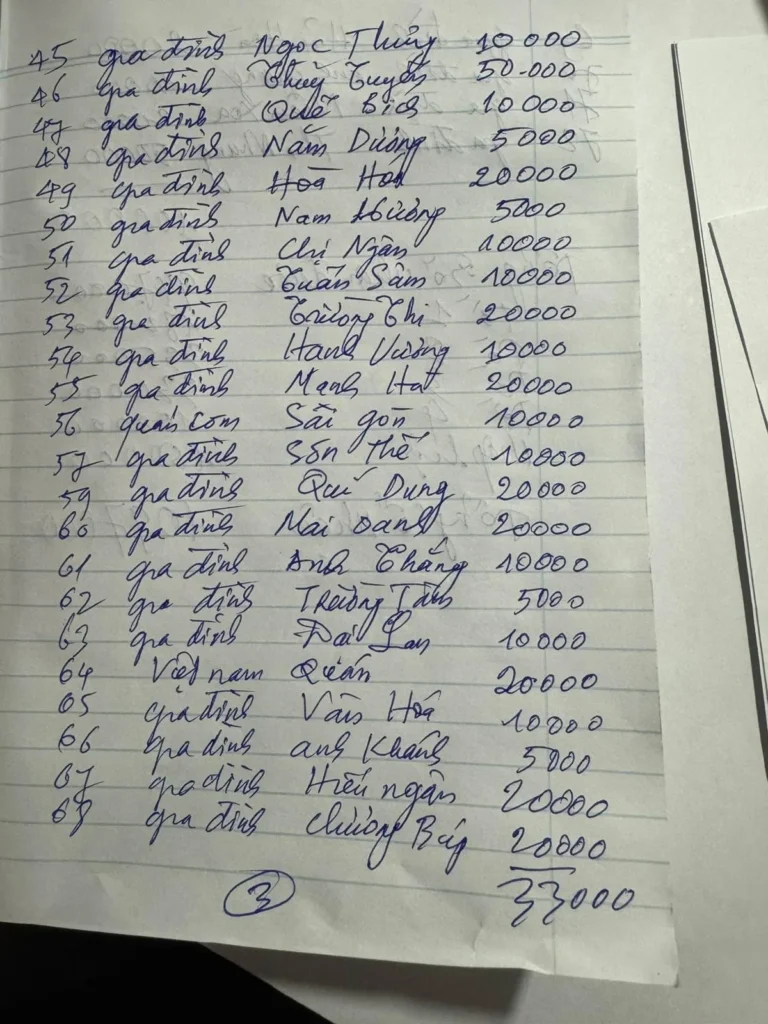 45 gia đình Ngọc Thủy 10000
46 gia đình Thủy Tuyên 50.000
47 gia đình Quế Bích 10000
48 gia đình Năm Dương 5000
49 gia đình Hoà Hoá 20000
50 gia đình Nam Hương 5000
51 gia đình Chị Ngân 10000
52 gia đình Tuấn Sâm 10000
53 gia đình Trường Thi 20000
54 gia đình Hạnh Vương 10000
55 gia đình Mạnh Hà 20000
56 quán cơm Sài gòn 10000
57 gia đình Sơn Thế 10000
59 gia đình Quí Dung 20000
60 gia đình Mai Oanh 20000
61 gia đình Anh Thắng 10000
62 gia đình Trường Tâm 5000
63 gia đình Đài Lan 10000
64 Việt nam Quán 20000
65 gia đình Vân Hoá 10000
66 gia đình anh Khánh 5000
67 gia đình Hiếu ngân 20000
68 gia đình Chương 20000
3 33000